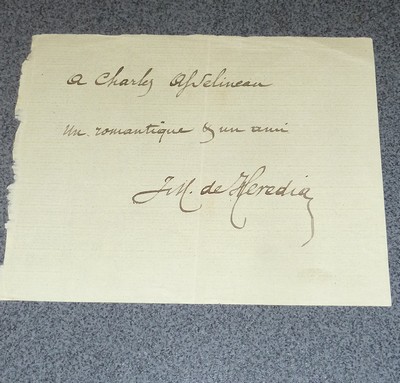 A Charles Asselineau
un romantique & un ami
J M. de Heredia